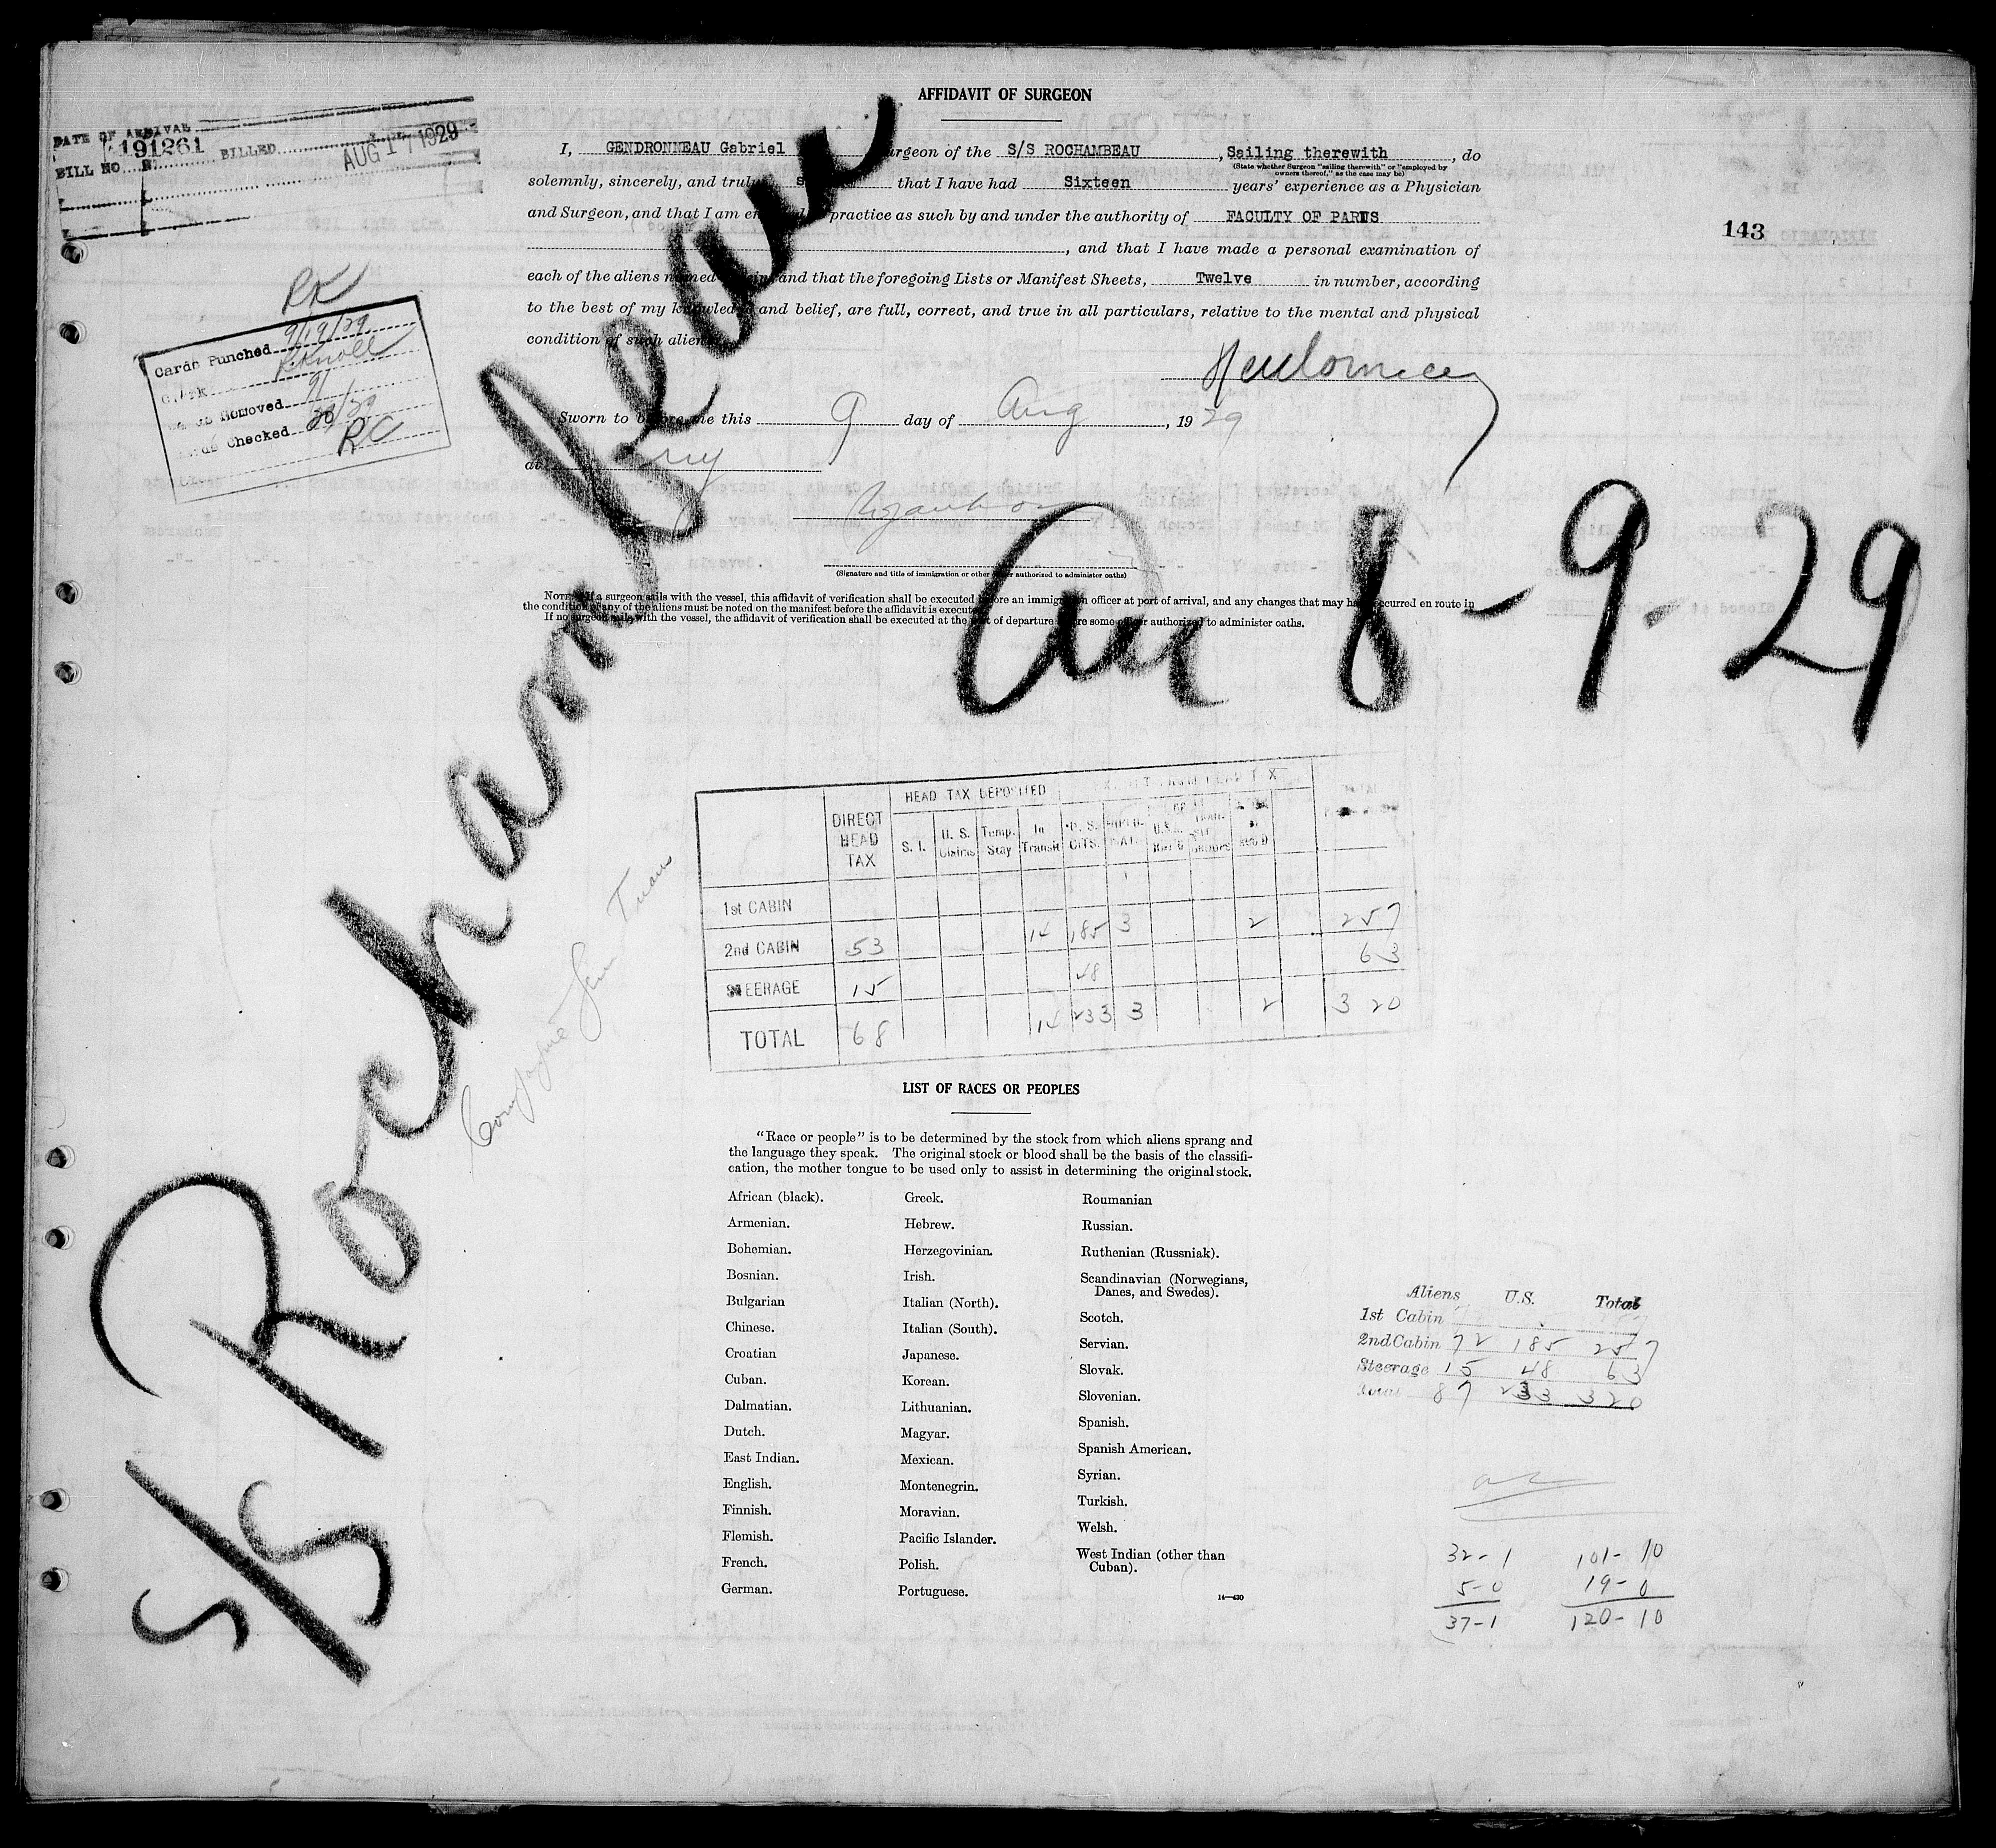 AFFIDAVIT OF SURGEON
DATE OF ARRIVAL
BILL NO. 191261 BILLED AUG 17 1929
I, GENDRONNEAU Gabriel Surgeon of the S/S ROCHAMBEAU, Sailing therewith, do
(State whether Surgeon "sailing therewith" or "employed by
owners thereof," as the case may be)
solemnly, sincerely, and truly that I have had Sixteen years' experience as a Physician
and Surgeon, and that I am entitled to practice as such by and under the authority of FACULTY OF PARIS
143
, and that I have made a personal examination of
each of the aliens named herein and that the foregoing Lists or Manifest Sheets, Twelve in number, according
to the best of my knowledge and belief, are full, correct, and true in all particulars, relative to the mental and physical
condition of such aliens
RK
Cards Punched 9/19/29
Clerk R. Knoll
Removed 9/
Cards Checked
RC
Sworn to before me this 9 day of Aug, 1929
at NY
(Signature and title of immigration or other officer authorized to administer oaths)
NOTE.—If a surgeon sails with the vessel, this affidavit of verification shall be executed before an immigration officer at port of arrival, and any changes that may have occurred en route in
the condition of any of the aliens must be noted on the manifest before the affidavit is executed.
If no surgeon sails with the vessel, the affidavit of verification shall be executed at the port of departure before some officer authorized to administer oaths.
S/S Rochambeau
Arr 8-9-29
HEAD TAX DEPOSITED
DIRECT HEAD TAX S. I. U. S. Claims Temp. Stay In Transit U. S. CITS.
1st CABIN
2nd CABIN 53 14 185 3 2 257
STEERAGE 15 48 63
TOTAL 68 14 233 3 2 320
Compagnie Gen Trans
LIST OF RACES OR PEOPLES
"Race or people" is to be determined by the stock from which aliens sprang and
the language they speak. The original stock or blood shall be the basis of the classifi-
cation, the mother tongue to be used only to assist in determining the original stock.
African (black).
Armenian.
Bohemian.
Bosnian.
Bulgarian
Chinese.
Croatian
Cuban.
Dalmatian.
Dutch.
East Indian.
English.
Finnish.
Flemish.
French.
German.
Greek.
Hebrew.
Herzegovinian.
Irish.
Italian (North).
Italian (South).
Japanese.
Korean.
Lithuanian.
Magyar.
Mexican.
Montenegrin.
Moravian.
Pacific Islander.
Polish.
Portuguese.
Roumanian
Russian.
Ruthenian (Russniak).
Scandinavian (Norwegians,
Danes, and Swedes).
Scotch.
Servian.
Slovak.
Slovenian.
Spanish.
Spanish American.
Syrian.
Turkish.
Welsh.
West Indian (other than
Cuban).
14—430
Aliens U.S. Total
1st Cabin
2nd Cabin 72 185 257
Steerage 15 48 63
Total 87 233 320
32-1 101-10
5-0 19-0
37-1 120-10